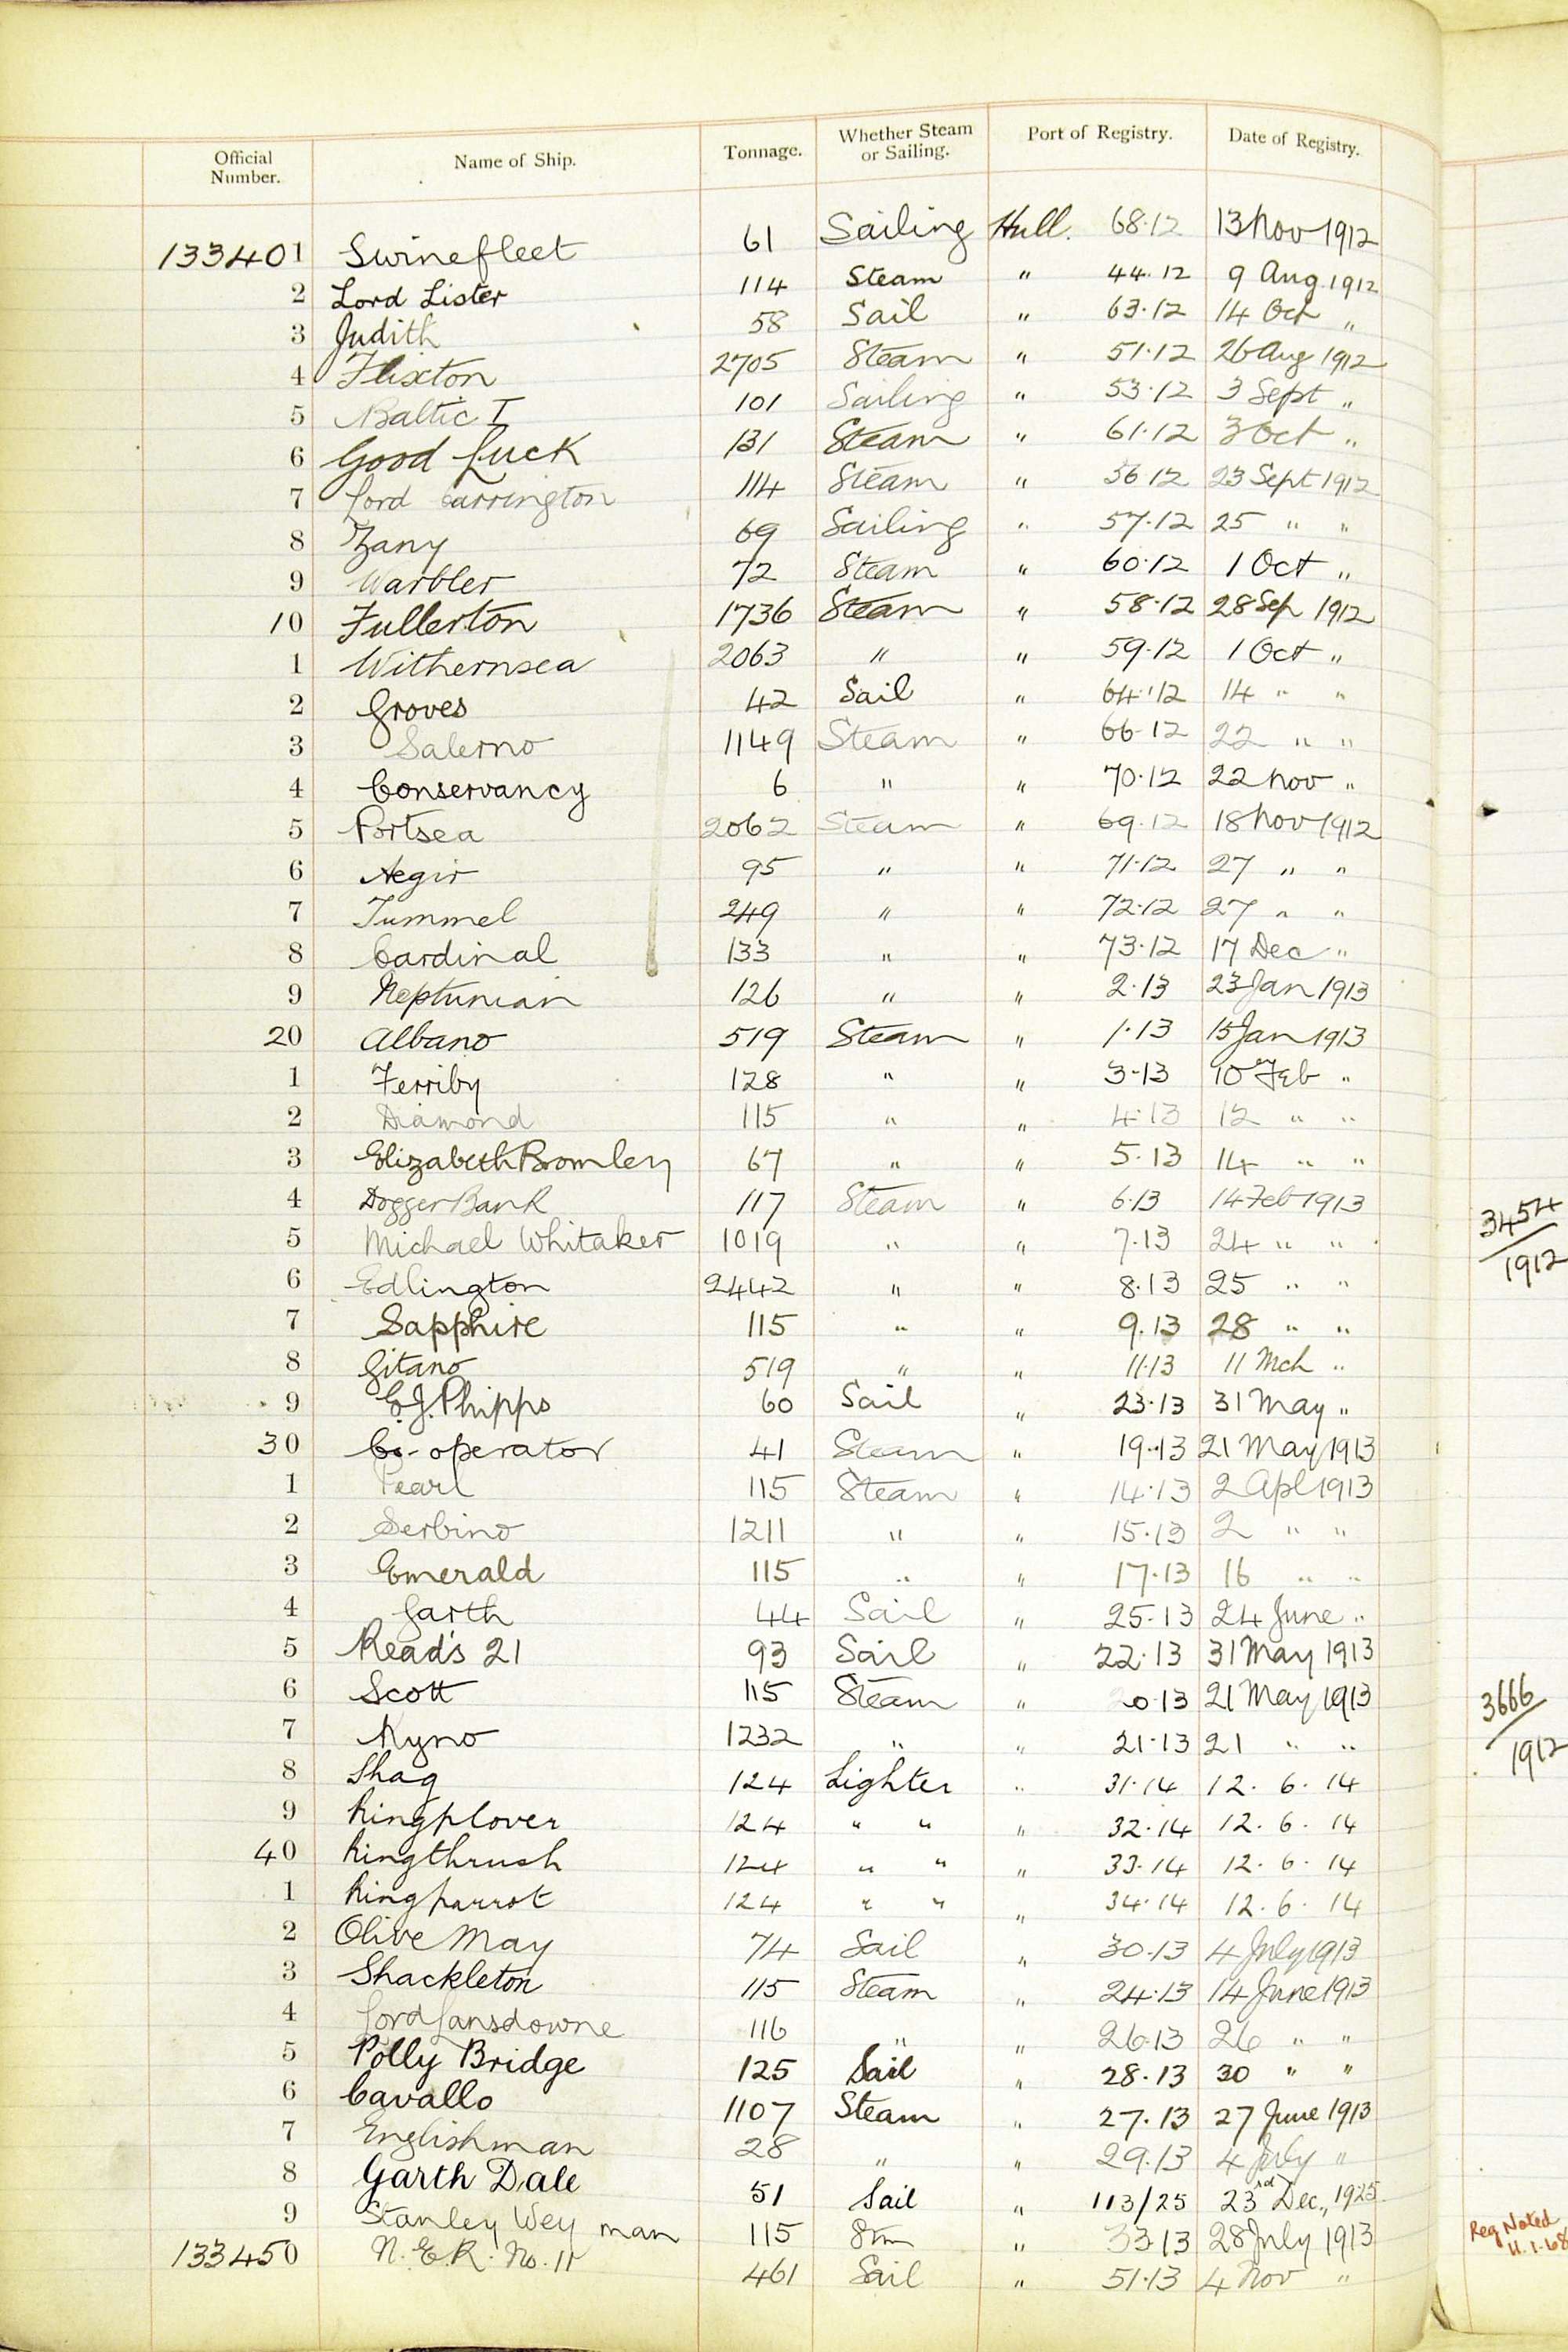 Official Number. Name of Ship. Tonnage. Whether Steam or Sailing. Port of Registry. Date of Registry.
133401 Swinefleet 61 Sailing Hull. 68.12 13 Nov 1912
2 Lord Lister 114 Steam " 44.12 9 Aug 1912
3 Judith 58 Sail " 63.12 14 Oct "
4 Flixton 2705 Steam " 51.12 26 Aug 1912
5 Baltic I 101 Sailing " 53.12 3 Sept "
6 Good Luck 131 Steam " 61.12 3 Oct "
7 Lord Carrington 114 Steam " 56.12 23 Sept 1912
8 Zany 69 Sailing " 57.12 25 " "
9 Warbler 72 Steam " 60.12 1 Oct "
10 Fullerton 1736 Steam " 58.12 28 Sep 1912
1 Withernsea 2063 " " 59.12 1 Oct "
2 Groves 42 Sail " 64.12 14 " "
3 Salerno 1149 Steam " 66.12 22 " "
4 Conservancy 6 " " 70.12 22 Nov "
5 Portsea 2062 Steam " 69.12 18 Nov 1912
6 Aegir 95 " " 71.12 27 " "
7 Tummel 249 " " 72.12 27 " "
8 Cardinal 133 " " 73.12 17 Dec "
9 Neptunian 126 " " 2.13 23 Jan 1913
20 Albano 519 Steam " 1.13 15 Jan 1913
1 Ferriby 128 " " 3.13 10 Feb "
2 Diamond 115 " " 4.13 12 " "
3 Elizabeth Bromley 67 " " 5.13 14 " "
4 Dogger Bank 117 Steam " 6.13 14 Feb 1913
5 Michael Whitaker 1019 " " 7.13 24 " "
6 Edlington 2442 " " 8.13 25 " "
7 Sapphire 115 " " 9.13 28 " "
8 Gitano 519 " " 11.13 11 Mch "
9 E.J. Phipps 60 Sail " 23.13 31 May "
30 Co-operator 41 Steam " 19.13 21 May 1913
1 Pearl 115 Steam " 14.13 2 Apl 1913
2 Serbino 1211 " " 15.13 2 " "
3 Emerald 115 " " 17.13 16 " "
4 Garth 44 Sail " 25.13 24 June "
5 Read's 21 93 Sail " 22.13 31 May 1913
6 Scott 115 Steam " 20.13 21 May 1913
7 Kyno 1232 " " 21.13 21 " "
8 Shag 124 Lighter " 31.14 12. 6. 14
9 Kingplover 124 " " " 32.14 12. 6. 14
40 Kingthrush 124 " " " 33.14 12. 6. 14
1 Kingparrot 124 " " " 34.14 12. 6. 14
2 Olive May 74 Sail " 30.13 4 July 1913
3 Shackleton 115 Steam " 24.13 14 June 1913
4 Lord Lansdowne 116 " " 26.13 26 " "
5 Polly Bridge 125 Sail " 28.13 30 " "
6 Cavallo 1107 Steam " 27.13 27 June 1913
7 Englishman 28 " " 29.13 4 July "
8 Garth Dale 51 Sail " 113/25 23rd Dec., 1925
9 Stanley Weyman 115 Stm " 33.13 28 July 1913
133450 N.E.R. No. 11 461 Sail " 51.13 4 Nov "
3454/1912
3666/1912
Reg Noted
11.1.68